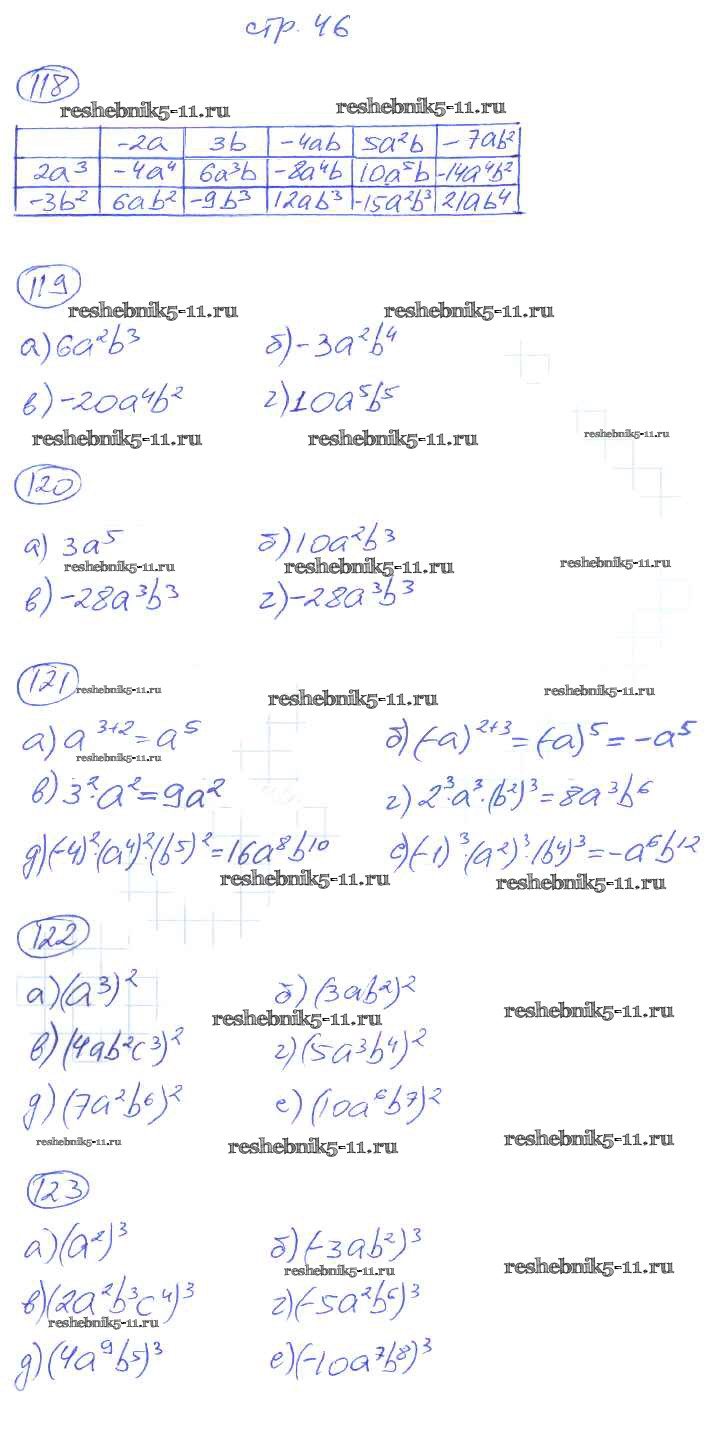 стр. 46
118
reshebnik5-11.ru reshebnik5-11.ru
-2a 3b -4ab 5a²b -7ab²
2a³ -4a⁴ 6a³b -8a⁴b 10a⁵b -14a⁴b²
-3b² 6ab² -9b³ 12ab³ -15a²b³ 21ab⁴
119
reshebnik5-11.ru reshebnik5-11.ru
а) 6a²b³ б) -3a²b⁴
в) -20a⁴b² г) 10a⁵b⁵
reshebnik5-11.ru reshebnik5-11.ru reshebnik5-11.ru
120
а) 3a⁵ б) 10a²b³
reshebnik5-11.ru reshebnik5-11.ru reshebnik5-11.ru
в) -28a³b³ г) -28a³b³
121 reshebnik5-11.ru reshebnik5-11.ru reshebnik5-11.ru
а) a³⁺² = a⁵ б) (-a)²⁺³ = (-a)⁵ = -a⁵
reshebnik5-11.ru
в) 3²·a² = 9a² г) 2³·a³·(b²)³ = 8a³b⁶
д) (-4)²·(a⁴)²·(b⁵)² = 16a⁸b¹⁰ е) (-1)³·(a²)³·(b⁴)³ = -a⁶b¹²
reshebnik5-11.ru reshebnik5-11.ru
122
а) (a³)² б) (3ab²)²
reshebnik5-11.ru reshebnik5-11.ru
в) (4ab²c³)² г) (5a³b⁴)²
д) (7a²b⁶)² е) (10a⁶b⁷)²
reshebnik5-11.ru reshebnik5-11.ru reshebnik5-11.ru
123
а) (a²)³ б) (-3ab²)³
reshebnik5-11.ru reshebnik5-11.ru
в) (2a²b³c⁴)³ г) (-5a²b⁶)³
reshebnik5-11.ru
д) (4a⁹b⁵)³ е) (-10a⁷b⁸)³